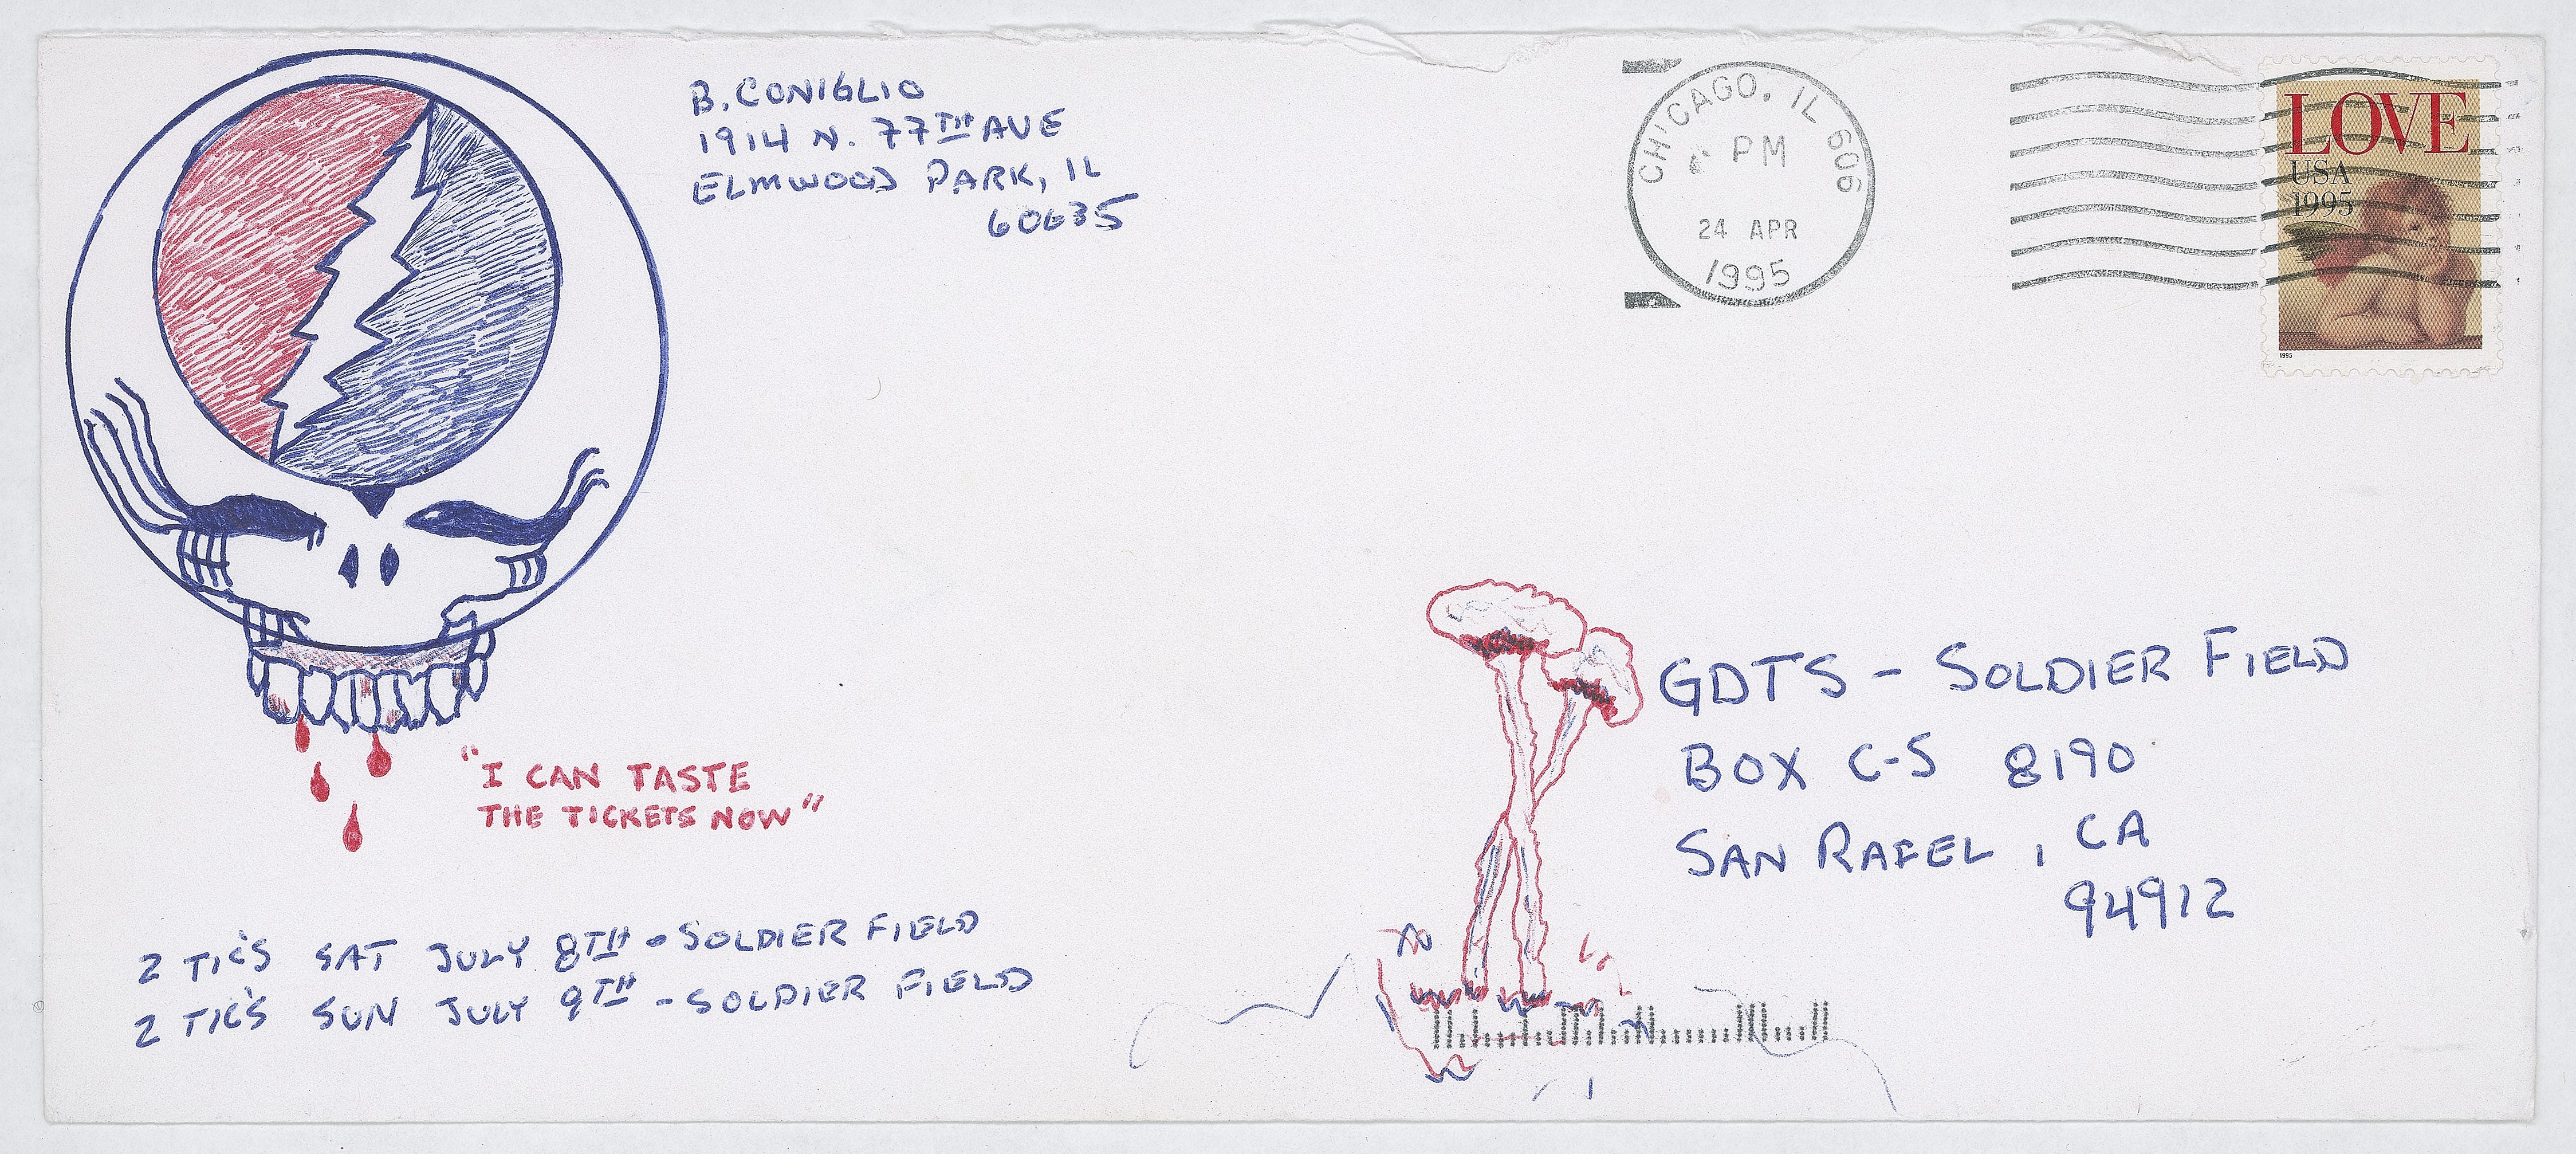 B. CONIGLIO
1914 N. 77TH AVE
ELMWOOD PARK, IL
60635
CHICAGO, IL 606
PM
24 APR
1995
LOVE
USA
1995
1995
"I CAN TASTE
THE TICKETS NOW"
GDTS - SOLDIER FIELD
BOX C-S 8190
SAN RAFEL, CA
94912
2 TIC'S SAT JULY 8TH - SOLDIER FIELD
2 TIC'S SUN JULY 9TH - SOLDIER FIELD